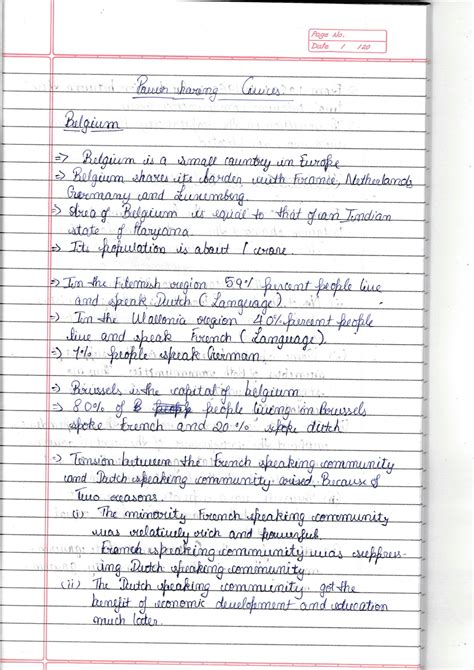 Page No.
Date / /20
Power sharing Civics
Belgium
=> Belgium is a small country in Europe
=> Belgium shares its border with France, Netherlands
Germany and Luxembng.
=> Area of Belgium is equal to that of an Indian
state of Haryana.
=> Its population is about 1 crore.
=> In the Flemish region 59% percent people live
and speak Dutch (Language).
=> In the Wallonia region 40% percent people
live and speak French (Language).
=> 1% people speak German.
=> Brussels is the capital of belgium.
=> 80% of people living in Brussels
spoke french and 20% spoke dutch
=> Tension between the French speaking community
and Dutch speaking community arised. Because of
Two reasons.
(i) The minority French speaking community
was relatively rich and powerful.
French speaking community was suppres-
ing Dutch speaking community.
(ii) The Dutch speaking community got the
benefit of economic development and education
much later.